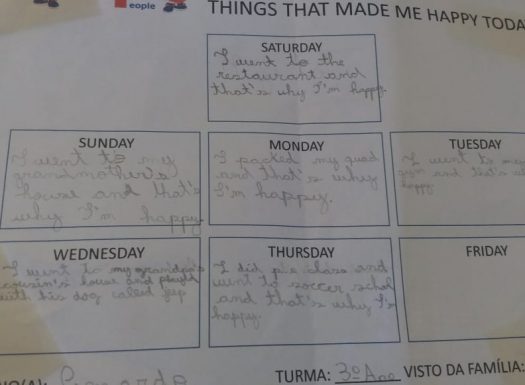 eople
THINGS THAT MADE ME HAPPY TODA
SATURDAY
I went to the
restaurant and
that's why I'm happy.
SUNDAY
I went to my
grandmother's
house and that's
why I'm happy.
MONDAY
I packed my
and that's why
I'm happy.
TUESDAY
I went to
and that's
happy.
WEDNESDAY
I went to my grandpa's
cousin's house and
with his dog called
THURSDAY
I did class and
went to soccer
and that's why I'm
happy.
FRIDAY
TURMA: 3º Ano VISTO DA FAMÍLIA: